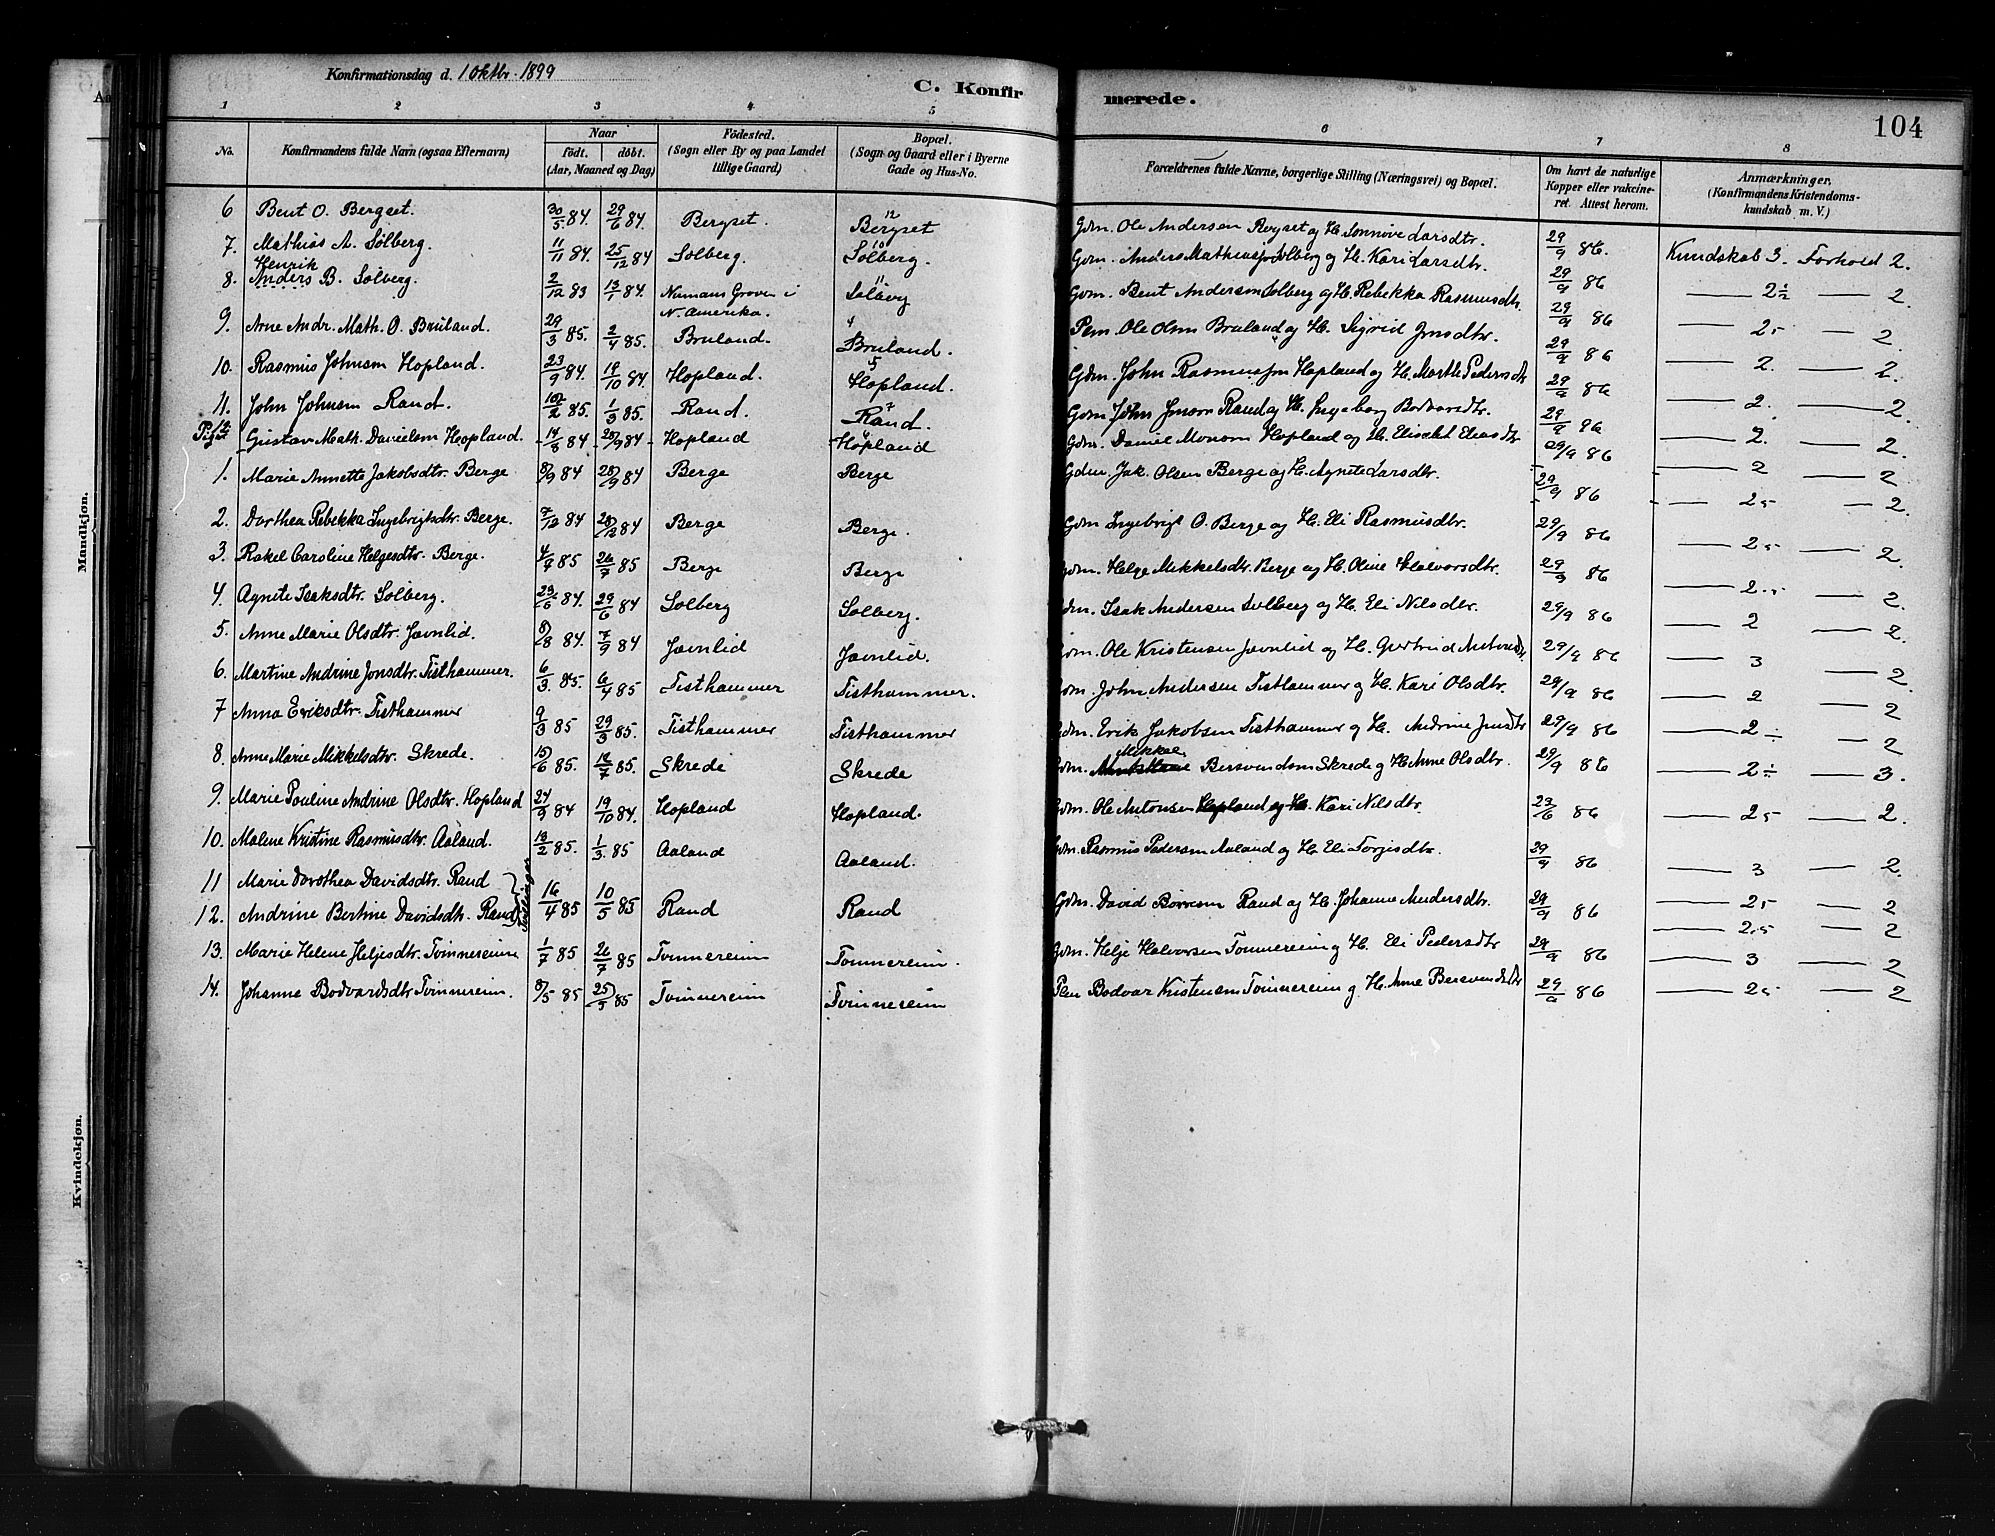 Konfirmationsdag d. 1 Oktbr. 1899
C. Konfir
merede.
104
1 2 3 4 5 6 7 8
No.
Konfirmandens fulde Navn (ogsaa Efternavn)
Naar
födt. döbt.
(Aar, Maaned og Dag)
Födested.
(Sogn eller By og paa Landet
tillige Gaard)
Bopæl.
(Sogn og Gaard eller i Byerne
Gade og Hus-No.
Forældrenes fulde Navne, borgerlige Stilling (Næringsvei) og Bopæl.
Om havt de naturlige
Kopper eller vakcine-
ret. Attest herom.
Anmærkninger,
(Konfirmandens Kristendoms-
kundskab m. V.)
Mandkjøn.
Kvindekjøn.
6 Bent O. Bergset. 30/5 84. 29/6 84. Bergset. 12 Bergset Gdm. Ole Andersen Bergset og H. Sønnøve Larsdtr. 29/9 86. Kundskab 3. Forhold 2.
7. Mathias A. Solberg. 11/11 84. 25/12 84 Solberg. 10 Solberg. Gdm. Anders Mathiassen Solberg og H. Kari Larsdtr. 29/9 86 — 2½ — 2.
8. Henrik
Anders B. Solberg. 2/12 83 13/1 84. Numans Groven i N. Amerika. 11 Solberg Gdm. Bent Andersen Solberg og H. Rebekka Rasmusdtr. 29/9 86 — 2,5 — 2.
9. Arne Andr. Math. O. Bruland. 29/3 85. 2/4 85. Bruland. 4 Bruland. Pm. Ole Olsen Bruland og H. Sigrid Jonsdtr. 29/9 86 — 2. — 2.
10. Rasmus Johnsen Hopland. 23/9 84. 19/10 84 Hopland. 5 Hopland. Gdm. John Rasmussen Hopland og H. Marthe Pedersdt. 29/9 86 — 2. — 2.
11. John Johnsen Rand. 2 85. 1/3 85. Rand. 7 Rand. Gdm John Jonsen Rand og H. Ingeborg Bodvarsdtr. 29/9 86 — 2. — 2.
12 Gustav Math. Danielsen Hopland. 14/8 84 28/9 84 Hopland 6 Hopland Gdm. Daniel Monsen Hopland og H. Elisabet Eliasdtr 29/9 86 — 2 — 2
Piger
1. Marie Annette Jakobsdtr. Berge 8/9 84 28/9 84 Berge Berge Gdm. Jak. Olsen Berge og H. Agnete Larsdtr. 29/9 86 — 2,5 — 2.
2. Dorthea Rebekka Ingebrigtsdtr. Berge. 7/12 84 28/12 84 Berge Berge. Gdm Ingebrigt O. Berge og H. Eli Rasmusdtr. 29/9 86 — 2,5 — 2.
3. Rakel Caroline Helgesdtr. Berge. 4/7 85 26/7 85 Berge Berge Gdm. Helge Mikkelsdtr. Berge og H. Oline Halvorsdtr. 29/9 86 — 2,5 — 2.
4. Agnete Isaksdtr. Solberg. 23/6 84. 29/6 84 Solberg Solberg. Gdm. Isak Andersen Solberg og H. Eli Nilsdtr. 29/9 86 — 2 — 2.
5. Anne Marie Olsdtr. Javnlid. 8/8 84. 7/9 84 Javnlid Javnlid. Gdm. Ole Kristensen Javnlid og H. Gertrud Antonsdt. 29/9 86 — 3 — 2.
6. Martine Andrine Jonsdtr. Tisthammer. 6/3. 85. 6/4 85 Tisthammer Tisthammer. Gdm. John Andersen Tisthammer og H. Kari Olsdtr. 29/9 86 — 2 — 2
7 Anna Eriksdtr. Tisthammer 9/3 85 29/3 85. Tisthammer Tisthammer Gdm. Erik Jakobsen Tisthammer og H. Andrine Jonsdtr 29/9 86 — 2÷ — 2
8. Anne Marie Mikkelsdtr. Skrede. 15/6 85. 12/7 85. Skrede Skrede Gdm. Mikkel Bersvendsen Skrede og H. Anne Olsdtr. 29/9 86 — 2÷ — 3.
9. Marie Pouline Andrine Olsdtr. Hopland 24/9 84 19/10 84. Hopland Hopland. Gdm. Ole Antonsen Hopland og H. Kari Nilsdtr. 23/6 86 — 2,5 — 2.
10. Malene Kristine Rasmusdtr. Aaland. 13/2 85. 1/3. 85 Aaland Aaland. Gdm. Rasmus Pedersen Aaland og H. Eli Torgisdtr. 29/9 86 — 3 — 2.
11 Marie Dorothea Davidsdtr. Rand
12. Andrine Bertine Davidsdtr. Rand Tvillinger 16/4 85 10/5 85 Rand Rand Gdm. David Børresen Rand og H. Johanne Andersdtr. 29/9 86 — 2,5 — 2
— 2,5 — 2
13. Marie Helene Heljesdtr. Tvinnereim 1/7 85 26/7 85 Tvinnereim Tvinnereim. Gdm. Helje Halvorsen Tvinnereim og H. Eli Pedersdtr 29/9 86 — 3 — 2
14. Johanne Bodvardsdtr Tvinnereim. 8/5 85 25/5 85 Tvinnereim Tvinnereim Pm Bodvar Kristensen Tvinnereim og H. Anne Bersvendsdtr 29/9 86 — 2,5 — 2